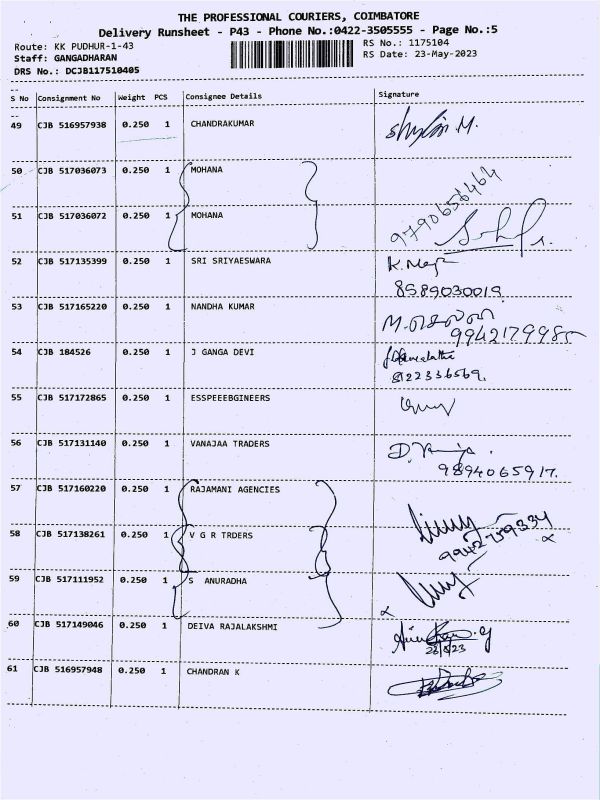 THE PROFESSIONAL COURIERS, COIMBATORE
Delivery Runsheet - P43 - Phone No.:0422-3505555 - Page No.:5
Route: KK PUDHUR-1-43 RS No.: 1175104
Staff: GANGADHARAN RS Date: 23-May-2023
DRS No.: DCJB117510405
S No Consignment No Weight PCS Consignee Details Signature
49 CJB 516957938 0.250 1 CHANDRAKUMAR
50 CJB 517036073 0.250 1 MOHANA 9790656464
51 CJB 517036072 0.250 1 MOHANA
52 CJB 517135399 0.250 1 SRI SRIYAESWARA
8589030019
53 CJB 517165220 0.250 1 NANDHA KUMAR
9942179985
54 CJB 184526 0.250 1 J GANGA DEVI
8122336569.
55 CJB 517172865 0.250 1 ESSPEEEBGINEERS
56 CJB 517131140 0.250 1 VANAJAA TRADERS
9894065917.
57 CJB 517160220 0.250 1 RAJAMANI AGENCIES
58 CJB 517138261 0.250 1 V G R TRDERS 9942759334
59 CJB 517111952 0.250 1 S ANURADHA
60 CJB 517149046 0.250 1 DEIVA RAJALAKSHMI
61 CJB 516957948 0.250 1 CHANDRAN K